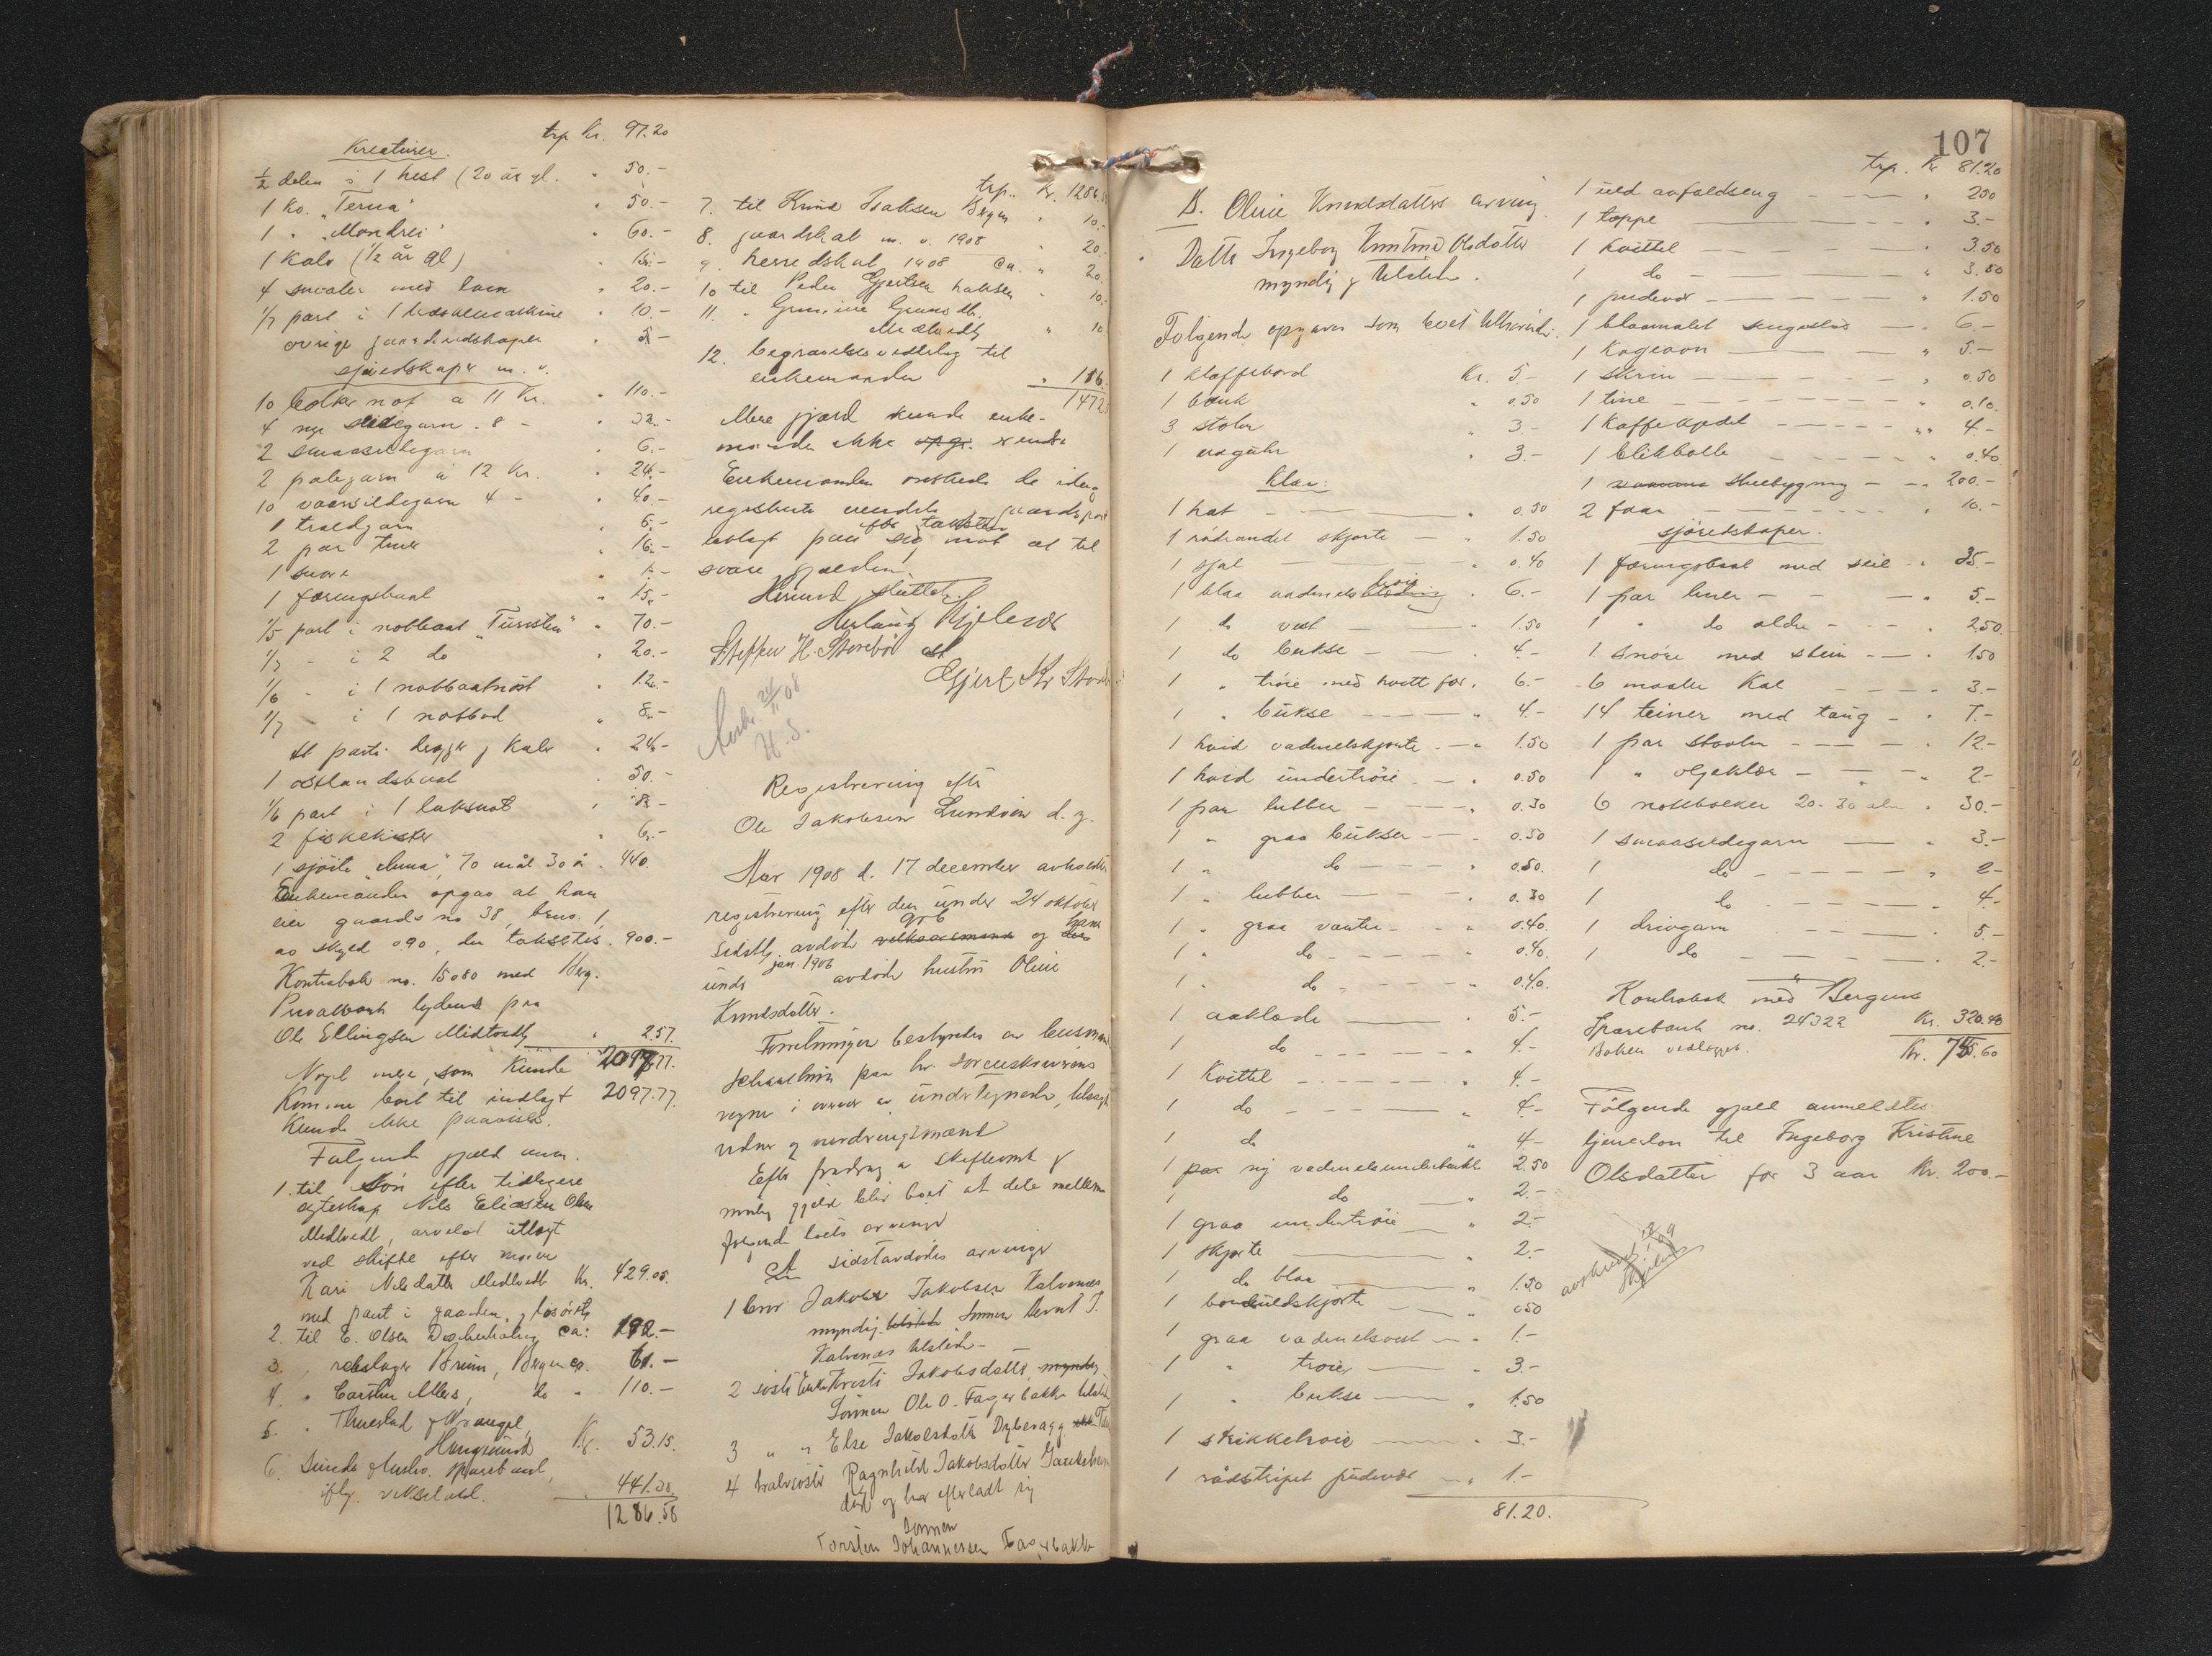 trp Kr. 97.20
Kreaturer.
½ delen i 1 hest (20 år gl. " 50.-
1 ko. "Terna" " 50.-
1 " "Mondrei" " 60.-
1 kalv (½ år gl) " 15.-
4 smaler med lam " 20.-
1/7 part i 1 treskemaskine " 10.-
øvrige gaardsredskaper " 5.-
sjøredskaper m. v.
10 bolker not a 11 Kr. " 110.-
4 nye sildegarn " 8 - " 32.-
2 smaasildegarn " 6.-
2 palegarn a 12 Kr. " 24.-
10 vaarsildegarn 4 - " 40.-
1 troldgarn " 6.-
2 par liner " 16.-
1 snøre " 1.-
1 færingsbaat " 15.-
1/5 part i notbaat "Turisten" " 70.-
1/7 - i 2 do " 20.-
1/6 - i 1 notbaatnøst " 12.-
1/7 - i 1 notbod " 8.-
et parti kagger j kaler " 24.-
1 østlandsbaat " 50.-
1/6 part i 1 laksenot " 8.-
2 fiskekister " 6.-
1 sjøite "Anna", 70 mål 30 å " 440.
Enkemanden opgav at han
eier gaards no 38, brno. 1,
av skyld 0.90, der taksertes. 900.-
Kontrabok no. 15080 med Berg.
Privatbank lydende paa
Ole Ellingsen Midtvedt " 257.
2097.77.
Noget mere, som kunde
komme boet til indlagt 2097.77.
kunde ikke paavises.
Følgende gjæld anm.
1. til søn efter tidligere
egteskap Nils Eliassen Olsen
Midtvedt, arvelod utlagt
ved skifte efter moren
Kari Nilsdatter Midtvedt Kr. 429.05.
med pant i gaarden, j løsøre
2. til E. Olsen Descherholm ca: 192.-
3. " rebslager Bruun, Bergen ca. 61.-
4. " Carsten Allers, do " 110.-
5. " Thuestad j Wrangel,
Haugesund Kr. 53.15.
6. Sunde j Austev. Sparebank,
iflg. vekselobl. " 441.38.
1286.58
trp. Kr. 1286.58
7. til Knud Isaksen Bergen " 10.-
8. gaardskat m. v. 1908 " 20.
9. herredskat 1908 ca. " 20.
10 til Peder Gjertsen Haksen " 10.
11. " Grunine Gruns dtr.
Midtvedt " 10
12. begravelsesvederlag til
enkemanden " 116.
1472.
Mere gjæld kunde enke-
manden ikke opgi erindre
Enkemanden ønskede de idag
registrerte eiendele j gaardspart
utlagt paa sig efter taksten mot at til
svare gjælden.
Hermed sluttet.
Herlaug Kjelesvik
Steffen H. Storebø
Gjert St. Storebø
24/11 08
H. S.
Registrering efter
Ole Jakobsen Lundøen d. y.
Aar 1908 d. 17 december avholdtes
registrering efter den under 24 oktober
sidstlj. avdøde velhaaremand grb og den hans
under jan. 1906 avdøde hustru Oline
Knudsdatter.
Forretningen bestyrtes av lensmand
schaathun paa hr sorenskriverens
vegne i overvær av undertegnede, tilsagte
vidner og vurderingsmænd
Efter fradrag av skifteomk j
mulig gjæld blir boet at dele mellem
følgende boets arvinger
A. sidstavdødes arvinger
1 bror Jakob Jakobsen Kalvenes
myndig. tilstede Sønnen Bernt J.
Kalvenes tilstede -
2 søster Enke Kristi Jakobsdatter, myndig
Sønnen Ole O. Fagerbakke tilstede
3 " " Else Jakobsdatter Dybevaag
4 halvsøster Ragnhild Jakobsdatter
død og har efterladt sig
sønnen
Torsten Johannessen Fagerbakke
107
B. Oline Knudsdatters arving
Datter Ingeborg Kristine Olsdatter
myndig j tilstede.
Følgende opgaves som boet tilhørende:
1 klaffebord Kr. 5.-
1 bænk " 0.50
3 stoler " 3.-
1 væguhr " 3.-
klær:
1 hat " 0.50
1 rødrandet skjorte " 1.50
1 sjal " 0.40
1 blaa vadmelsklædning trøie " 6.-
1 do vest " 1.50
1 do bukse " 4.-
1 " trøie med hvitt for " 6.-
1 " bukse " 4.-
1 hvid vadmelskjorte " 1.50
1 hvid undertrøie " 0.50
1 par lubber " 0.30
1 " graa bukser " 0.50
1 " do " 0.50.
1 " lubber " 0.30
1 " graa vanter " 0.40.
1 " do " 0.40.
1 " do " 0.40.
1 aaklæde " 5.-
1 do " 4.-
1 Kvittel " 4.-
1 do " 4.-
1 do " 4.-
1 par ny vadmelsunderbukse 2.50
1 do " 2.-
1 graa undertrøie " 2.-
1 skjorte " 2.-
1 do blaa " 1.50
1 bomuldskjorte " 0.50
1 graa vadmelsvest " 1.-
1 " trøie " 3.-
1 " bukse " 1.50
1 strikketrøie " 3.-
1 rødstripet pudevar " 1.-
81.20.
trp. Kr 81.20
1 uld avfaldseng " 2.50
1 tæppe " 3.-
1 kvittel " 3.50
1 do " 3.50
1 pudevar " 1.50
1 blaamalet sengested " 6.-
1 Kogeovn " 5.-
1 skrin " 0.50
1 tine " 0.10.
1 Kaffekjedel " 4.-
1 blikbolle " 0.40
1 stuebygning " 200.-
2 faar " 10.-
sjøredskaper.
1 færingsbaat med seil " 35.-
1 par liner " 5.-
1 " do ældre " 2.50.
1 snøre med stein " 1.50
6 maaler Kal " 3.-
14 teiner med taug " 7.-
1 par støvler " 12.-
1 " oljeklær " 2.-
6 notbolker 20-30 aln " 30.-
1 smaasildegarn " 3.-
1 do " 2-
1 do " 4-
1 drivgarn " 5.-
1 do " 2.-
Kontrabok med Bergens
Sparebank no. 24322 Kr. 320.40
Boken vedlægges. Kr. 785.60
Følgende gjæld anmeldtes:
tjenerløn til Ingeborg Kristine
Olsdatter for 3 aar Kr. 200.-
avskrevet